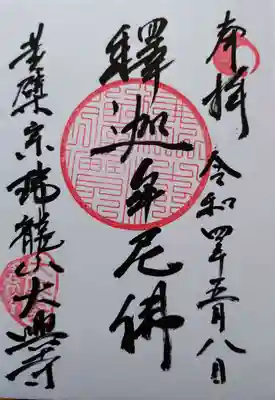 奉拝
令和四年五月八日
釋迦牟尼佛
黄檗宗瑞龍山大興寺